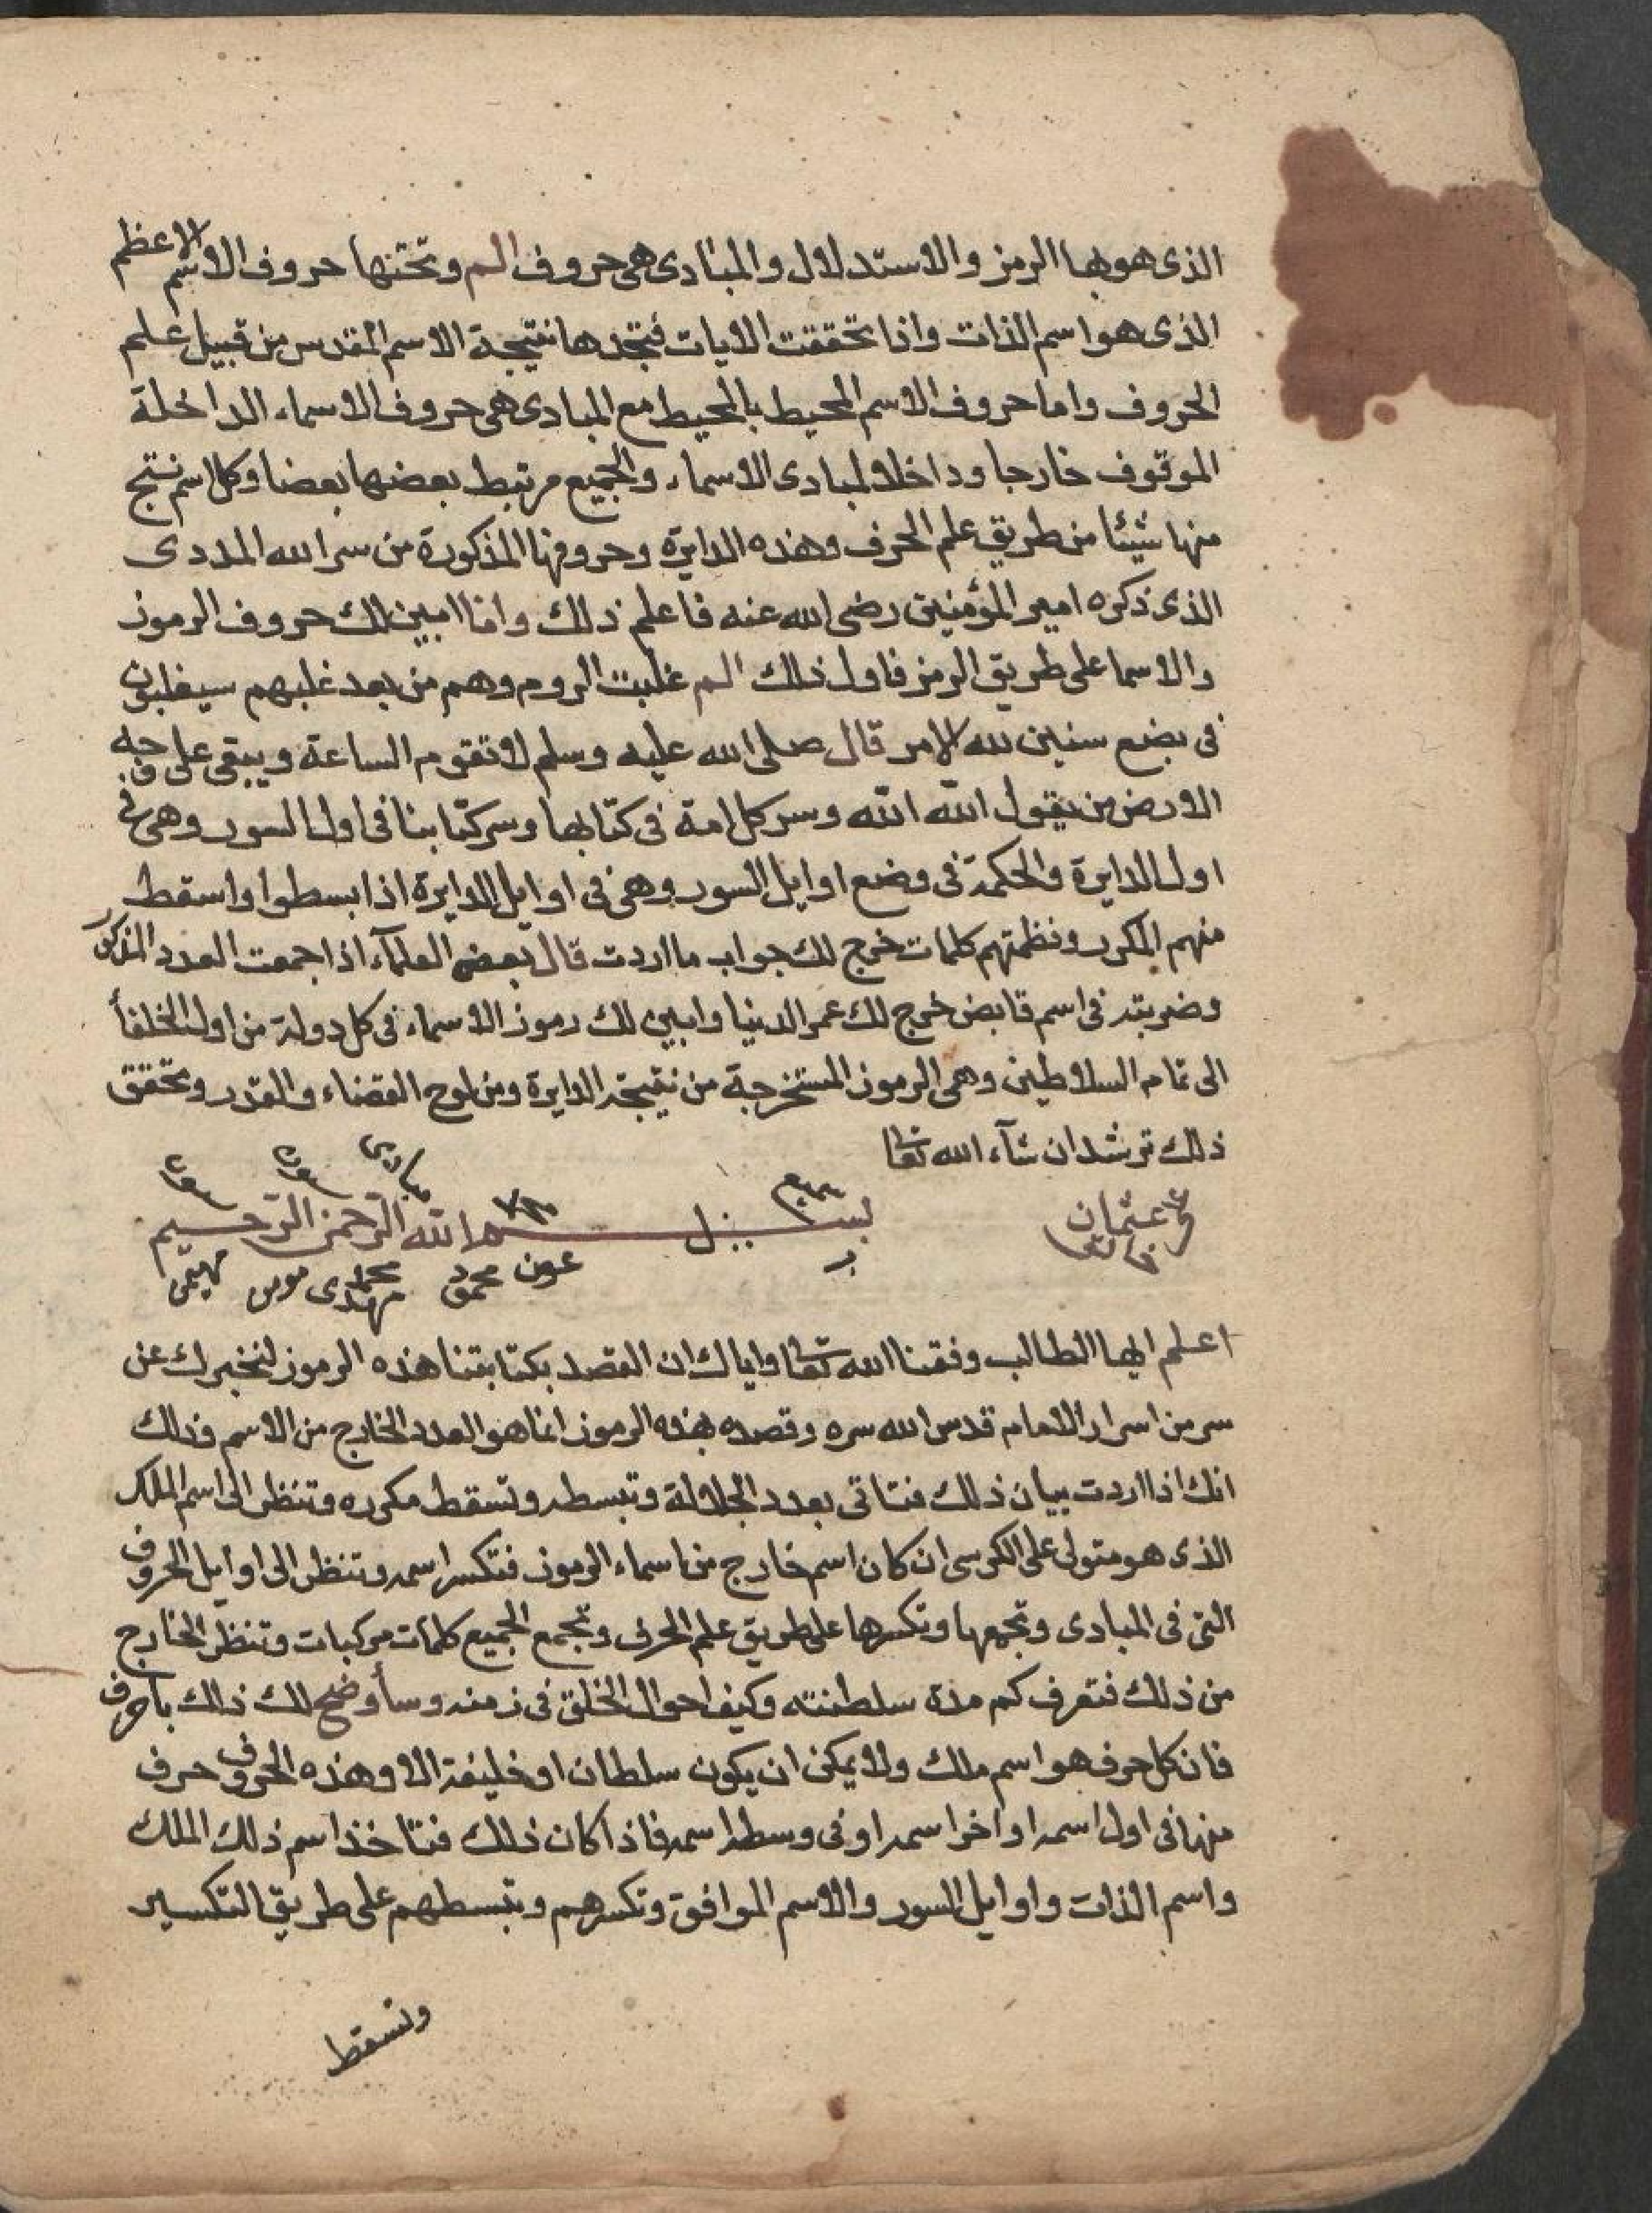 الذى هو بها الرمز والاستدلال والمبادى هى حروف الم وتحتها حروف الاسم الاعظم
الذى هو اسم الذات واذا تحققت الايات فتجدها نتيجة الاسم المقدس من قبيل علم
الحروف واما حروف الاسم المحيط بالمحيط مع المبادى هى حروف الاسماء الداخلة
الموقوف خارجا وداخلا لمبادى الاسماء والجميع مرتبط بعضها بعضا وكل اسم نتج
منها شيئا من طريق علم الحرف وهذه الدايرة وحروفها المذكورة من سر الله المددى
الذى ذكره امير المؤمنين رضى الله عنه فاعلم ذلك وانا ابين لك حروف الرموز
والاسما على طريق الرمز فاول ذلك الم غلبت الروم وهم من بعد غلبهم سيغلبون
فى بضع سنين لله الامر قال صلى الله عليه وسلم لا تقوم الساعة ويبقى على وجه
الارض من يقول الله الله وسر كل امة فى كتابها وسر كتابنا فى اول السور وهى فى
اول الدايرة والحكمة فى وضع اوايل السور وهى فى اوايل الدايرة اذا بسطوا واسقط
منهم المكرر ونظمتهم كلمات خرج لك جواب ما اردت قال بعض العلمآء اذا جمعت العدد المذكور
وضربته فى اسم قابض خرج لك عمر الدنيا وابين لك رموز الاسماء فى كل دولة من اول الخلفأ
الى تمام السلاطين وهى الرموز المستخرجة من نتيجة الدايرة ومن لوح القضاء والقدر وتحقق
ذلك ترشد ان شآء الله تعا
عثمان
بسم الله الرحمن الرحيم
عون محمود محمد مهدى موسى
اعلم ايها الطالب وفقنا الله تعا واياك ان القصد بكتابتنا هذه الرموز لنخبرك عن
سر من اسرار الامام قدس الله سره وقصده بهذه الرموز انما هو العدد الخارج من الاسم وذلك
انك اذا اردت بيان ذلك فتاتى بعدد الجلالة وتبسطه وتسقط مكرره وتنظر الى اسم الملك
الذى هو متولى على الكرسى ان كان اسم خارج من اسماء الرموز فتكسر اسمه وتنظر الى اوايل الحروف
التى فى المبادى وتجمعها وتكسرها على طريق علم الحرف وتجمع الجميع كلمات مركبات وتنظر الخارج
من ذلك فتعرف كم مدة سلطنته وكيف احوال الخلق فى زمنه وسأوضح لك ذلك بأحرف
فان كل حرف هو اسم ملك ولا يمكن ان يكون سلطان او خليفة الا وهذه الحروف حرف
منها فى اول اسمه او اخر اسمه او فى وسط اسمه فاذا كان ذلك فتاخذ اسم ذلك الملك
واسم الذات واوايل السور والاسم الموافق وتكسرهم وتبسطهم على طريق التكسير
وتسقط